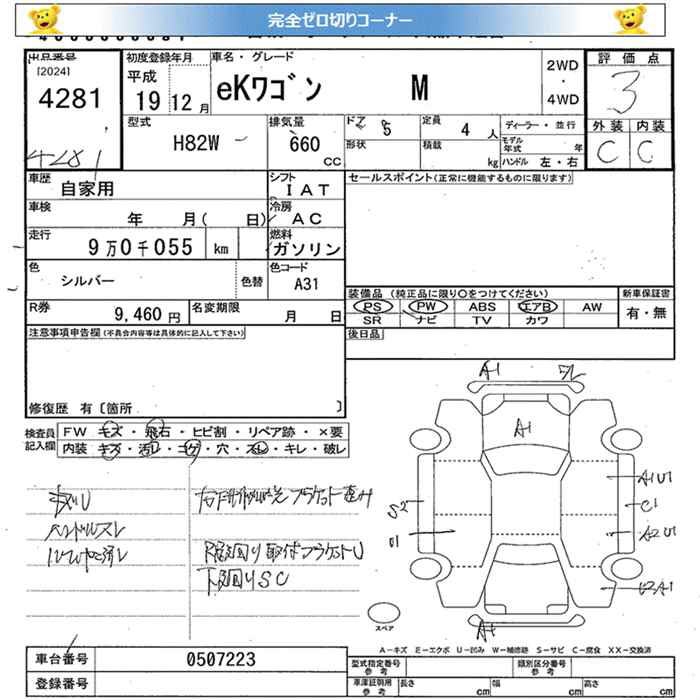 完全ゼロ切りコーナー
出品番号 初度登録年月 車名・グレード 2WD・4WD 評価点
[2024] 平成 19 12月 eKワゴン M 3
4281 型式 H82W 排気量 660 CC ドア 5 定員 4 人 ディーラー・並行 外装 内装
4281 形状 積載 kg モデル年式 年 ハンドル 左・右 C C
車歴 自家用 シフト IAT セールスポイント(正常に機能するものに限ります)
車検 年 月( 日) 冷房 AC
走行 9万0千055 km 燃料 ガソリン
色 シルバー 色替 色コード A31
装備品 (純正品に限り○をつけてください) 新車保証書
R券 9,460円 名変期限 月 日 PS PW ABS エアB AW 有・無
SR ナビ TV カワ
注意事項申告欄(不具合内容等は具体的に記入して下さい) 後日品
修復歴 有〔箇所 〕
検査員記入欄 FW キズ・飛石・ヒビ割・リペア跡・×要
内装 キズ・汚レ・コゲ・穴・スレ・キレ・破レ
A-1
A-1
ハンドルスレ
下廻りSC
S2
A1U1
C1
A2U1
スペア
A-キズ E-エクボ U-凹み W-補修跡 S-サビ C-腐食 XX-交換済
車台番号 0507223 型式指定番号 参考 類別区分番号 参考
登録番号 車庫証明用 参考 長さ cm 幅 cm 高さ cm